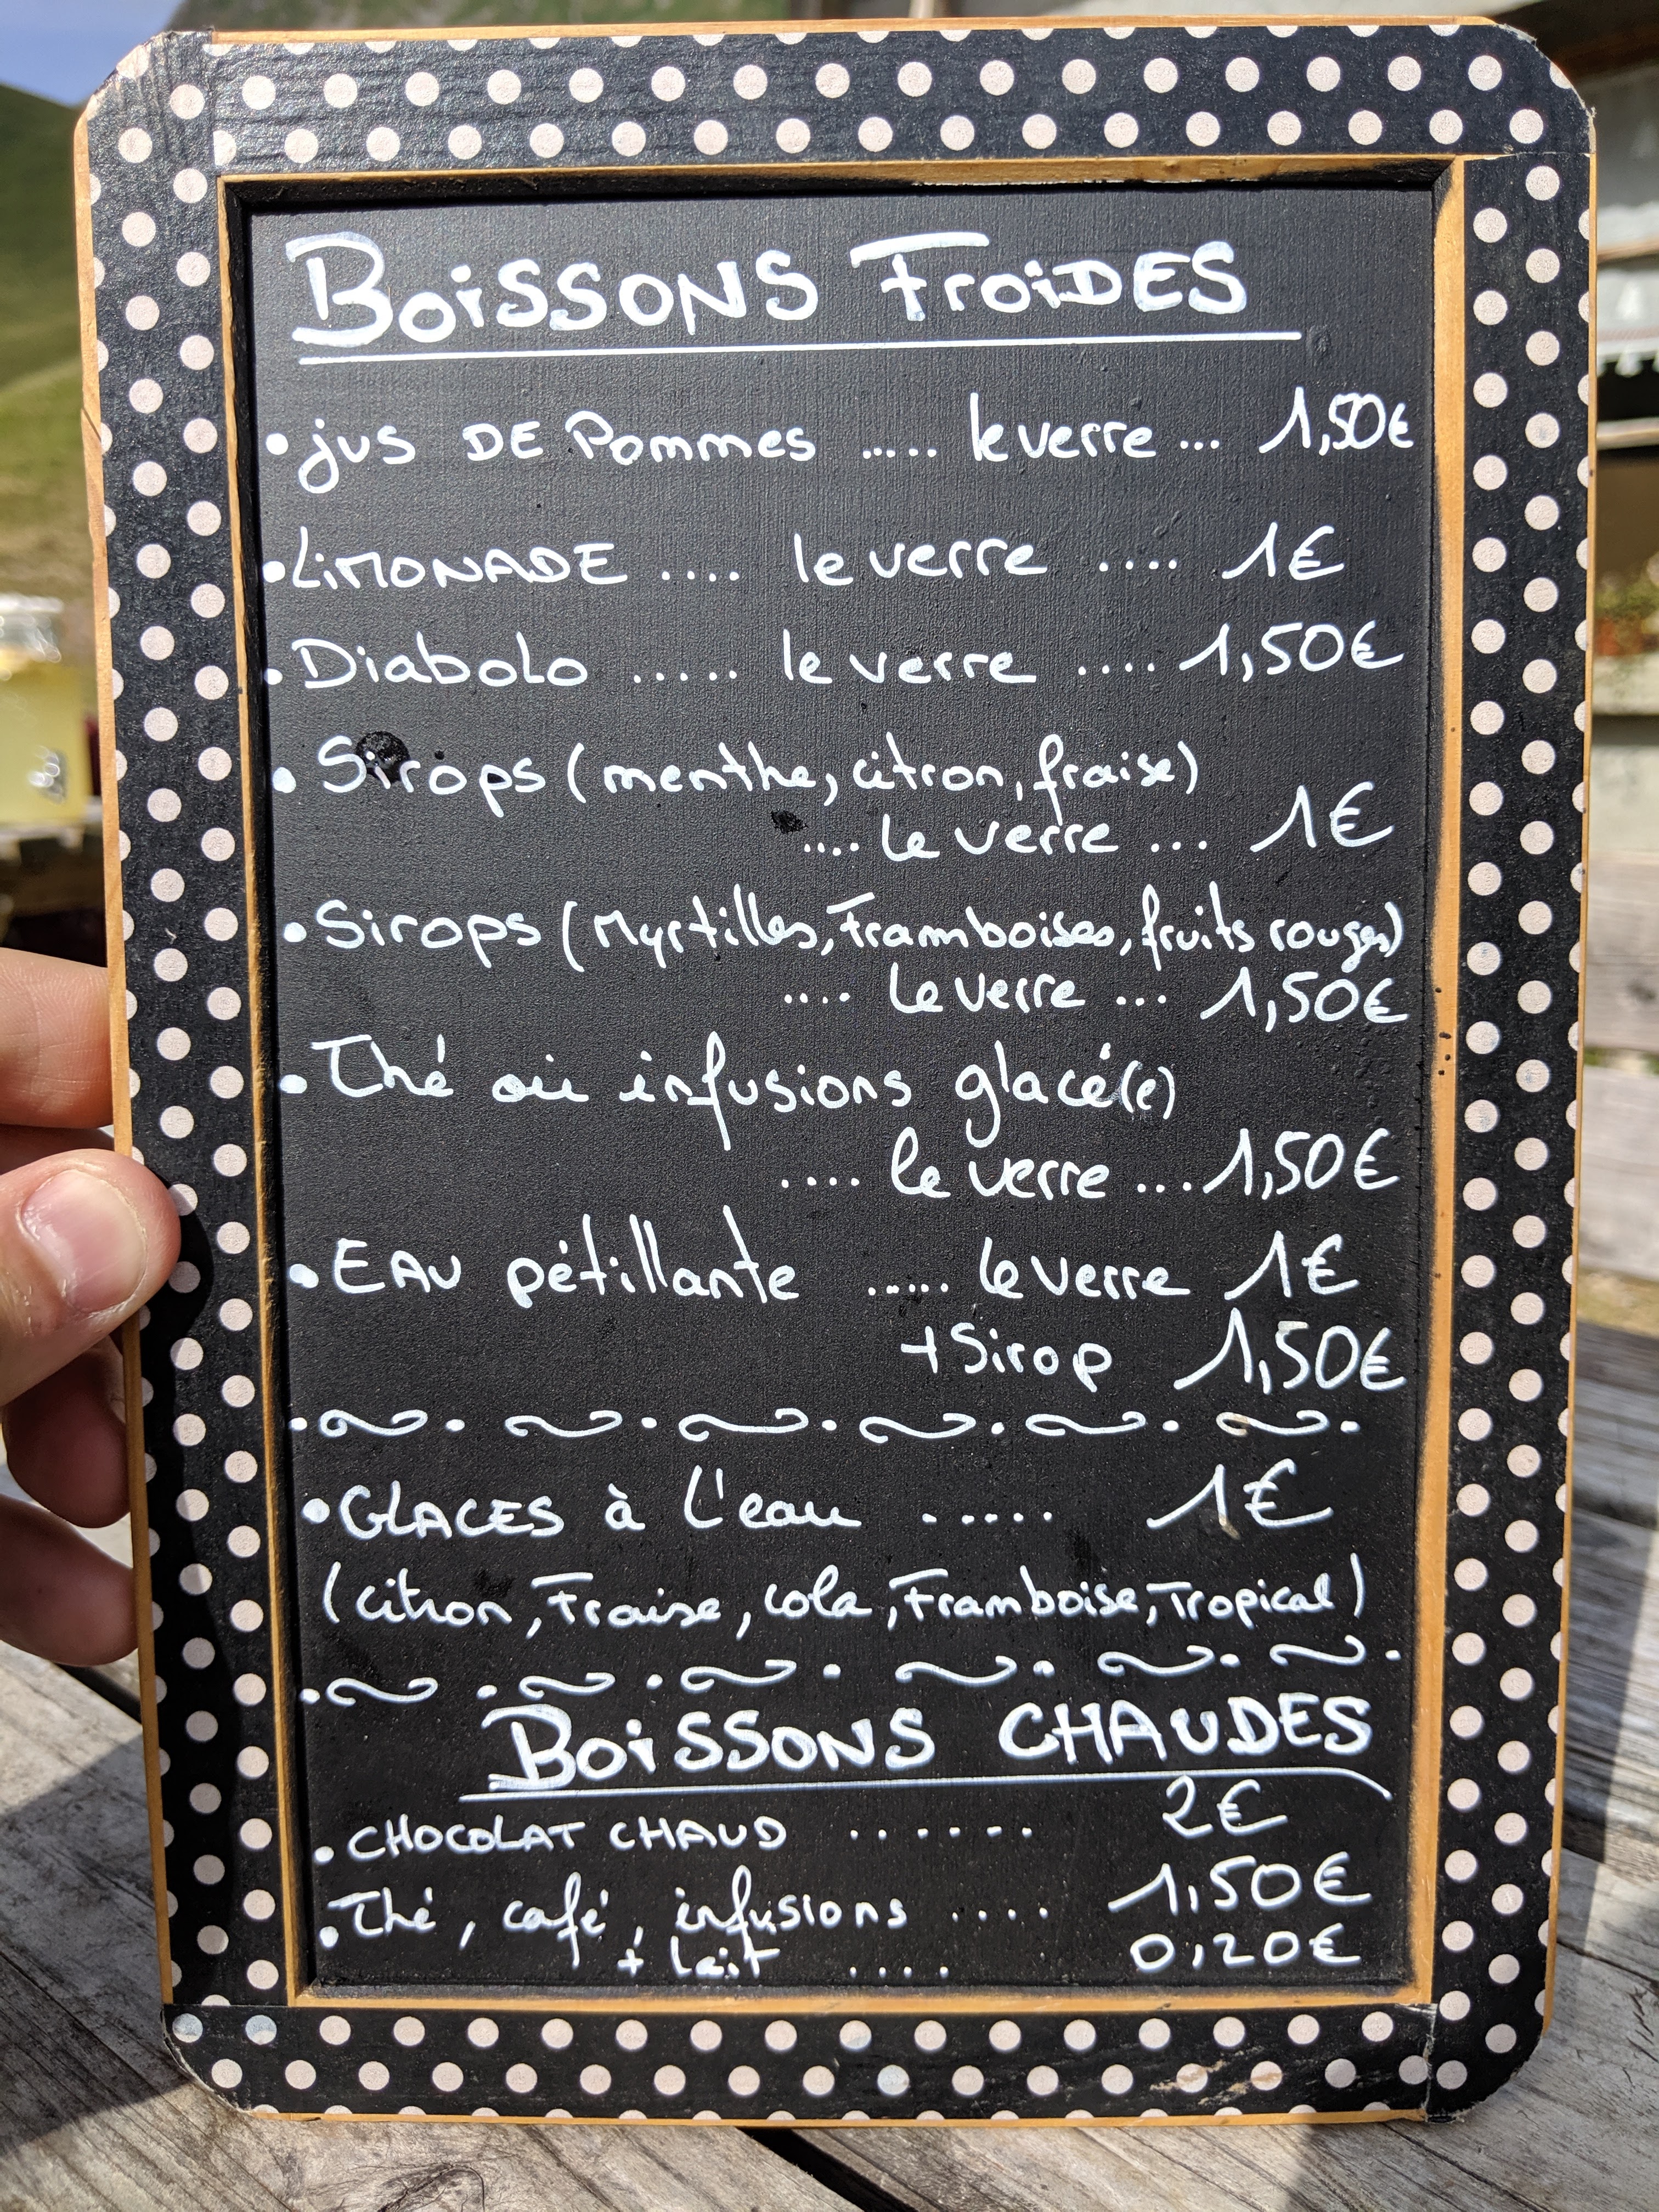 BOISSONS FROIDES
• jus DE Pommes ..... le verre ... 1,50€
• LIMONADE .... le verre .... 1€
• Diabolo ..... le verre .... 1,50€
• Sirops (menthe, citron, fraise)
.... le verre ... 1€
• Sirops (Myrtilles, Framboises, fruits rouges)
.... le verre ... 1,50€
• Thé ou infusions glacé(e)
.... le verre ... 1,50€
• EAU pétillante ...... le verre 1€
+ Sirop 1,50€
• GLACES à l'eau ..... 1€
(citron, Fraise, cola, Framboise, Tropical)
BOISSONS CHAUDES
• CHOCOLAT CHAUD ...... 2€
• Thé, café, infusions .... 1,50€
+ lait .... 0,20€